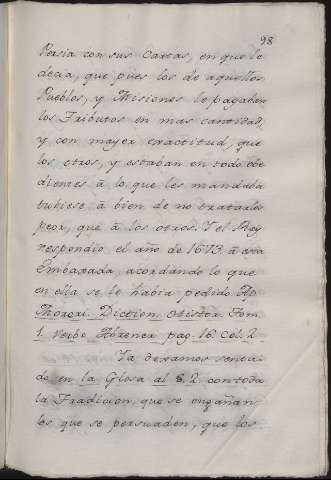 98
Persia con sus Cartas, en que le
decia, que pues los de aquellos
Pueblos, y Misiones le pagaban
los Tributos en mas cantidad,
y con mayor exactitud, que
los otros, y estaban en todo obe
dientes à lo que les mandaba
tubiese à bien de no tratarlos
peor, que à los otros. Y el Rey
respondio el año de 1673 à esta
Embaxada, acordando lo que
en ella se le habia pedido. Ap.
Moreri. Diction. Histor. Tom.
1. verbo Abrener pag. 16. Col. 2
Ya dexamos senta-
do en la Glosa al §. 2. con toda
la Tradicion, que se engañan
los que se persuaden, que los